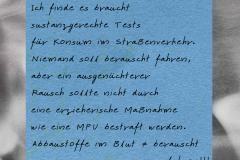 Ich finde es braucht
sustanzgerechte Tests
für Konsum im Straßenverkehr.
Niemand soll berauscht fahren,
aber ein ausgenüchterer
Rausch sollte nicht durch
eine erzieherische Maßnahme
wie eine MPU bestraft werden.
Abbaustoffe im Blut ≠ berauscht